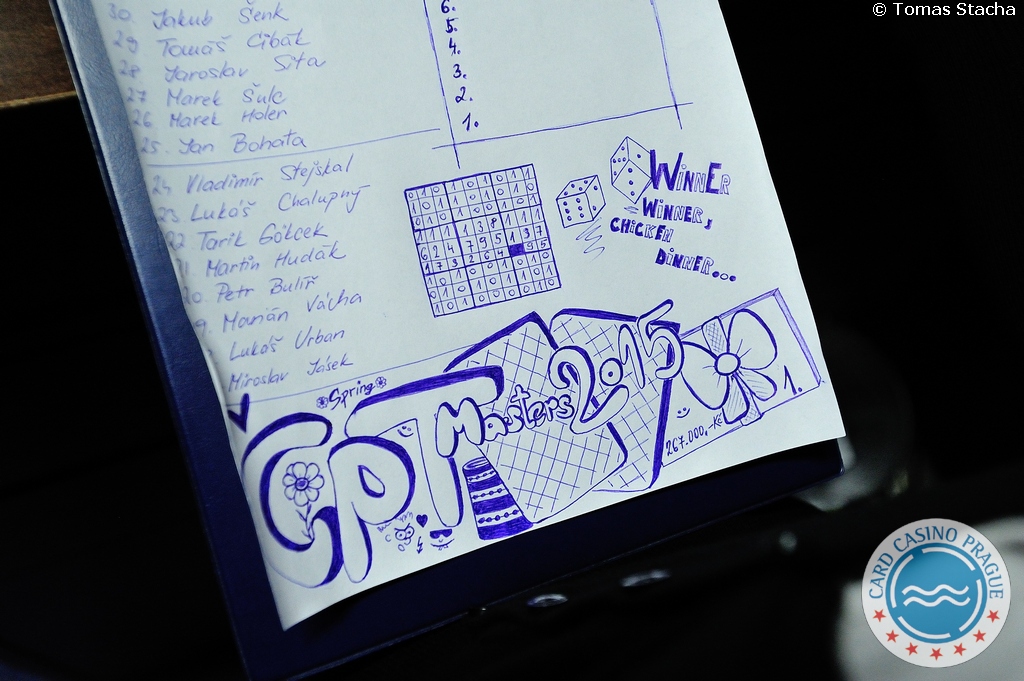 © Tomas Stacha
30. Jakub Šenk
29 Tomáš Cibák
28 Jaroslav Sita
27 Marek Šulc
26 Marek Holer
25. Jan Bohata
24 Vladimír Stejskal
23 Lukáš Chalupný
22 Tarik Gökcek
21. Martin Hudák
20. Petr Bulíř
9. Marián Vácha
Lukáš Urban
Miroslav Jásek
6.
5.
4.
3.
2.
1.
WINNER
WINNER,
CHICKEN
DINNER...
Spring
CPT Masters 2015
267.000,-Kč
1.
CARD CASINO PRAGUE